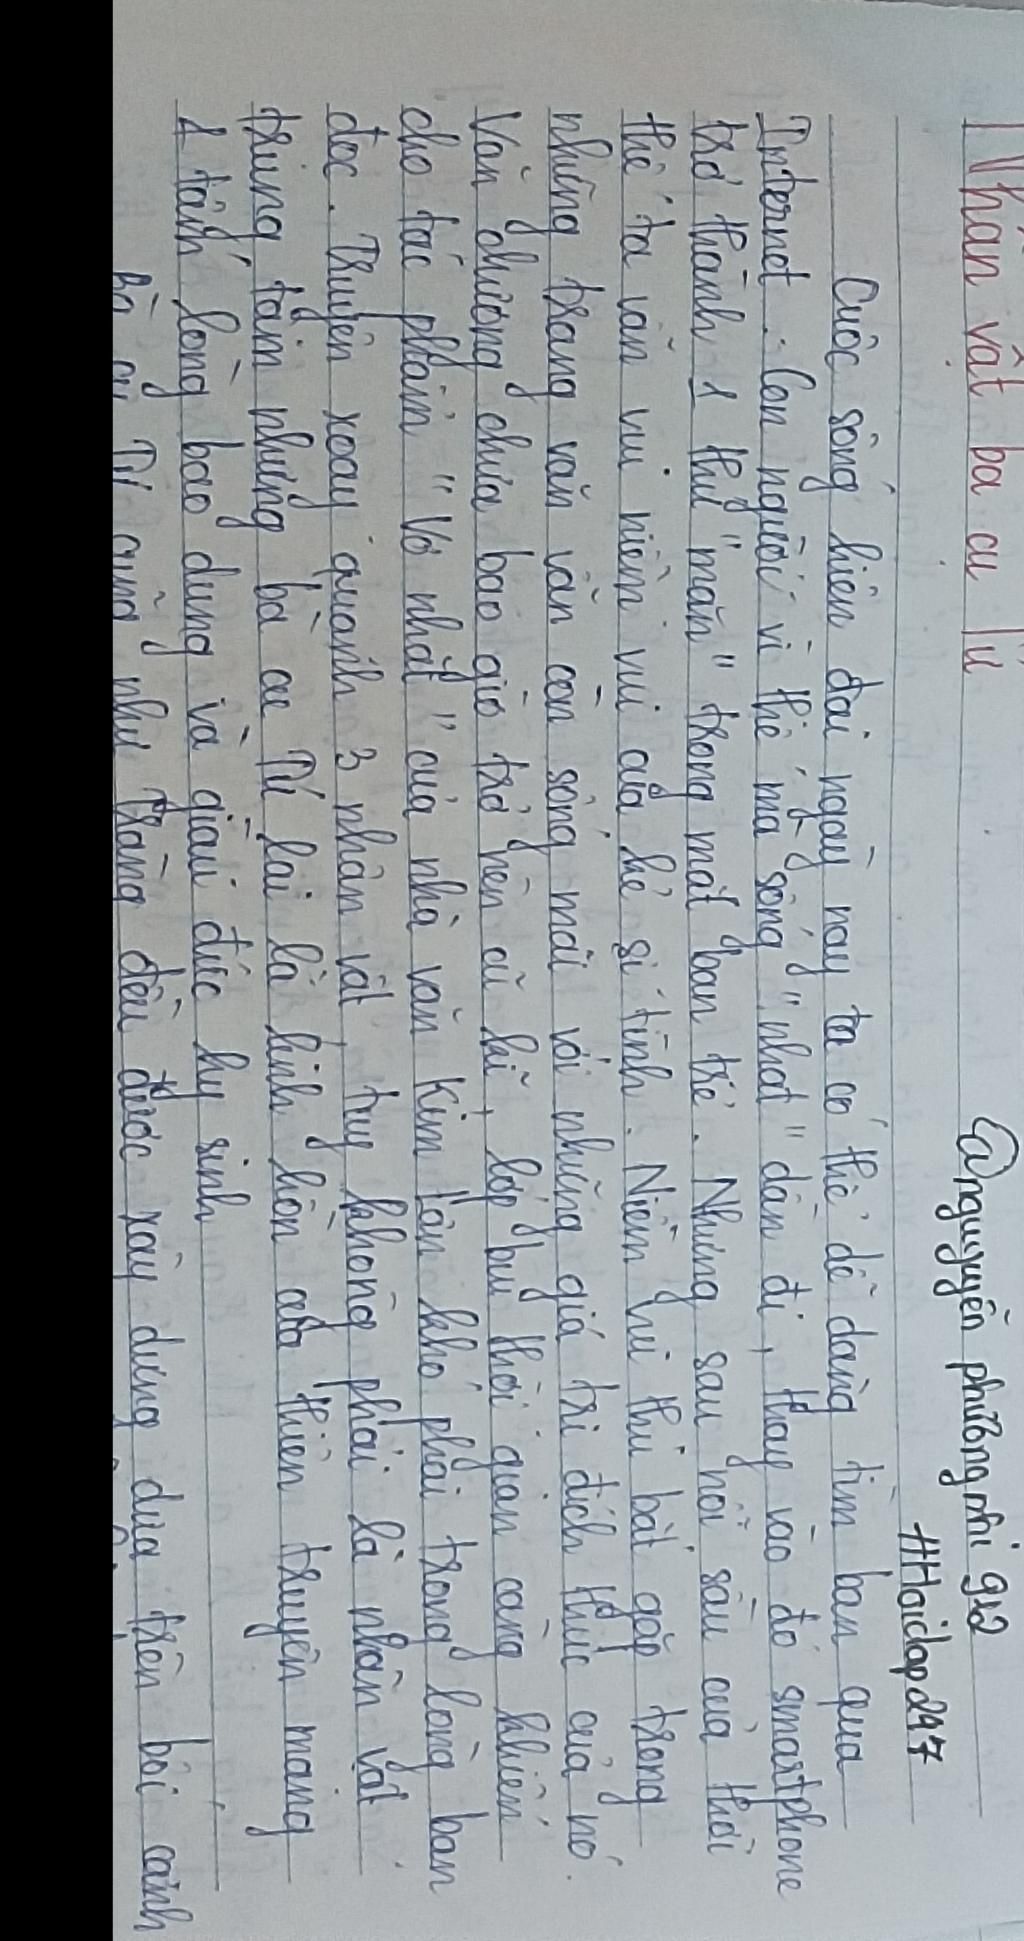 Nhân vật bà cụ Tứ
@nguyuyễn phương nhi 912
#Hoidap247
Cuộc sống hiện đại ngày nay ta có thể dễ dàng tìm bạn qua
Internet. Con người vì thế mà sống "nhạt" dần đi, thay vào đó smartphone
trở thành 1 thứ "mặn" trong mắt bạn trẻ. Nhưng sau nỗi sầu của thời
thế ta vẫn vui niềm vui của kẻ si tình. Niềm vui thi bắt gặp trong
những trang văn vẫn còn sống mãi với những giá trị đích thực của nó.
Văn chương chưa bao giờ trở nên cũ kĩ, lớp bụi thời gian càng khiến
cho tác phẩm "Vợ nhặt" của nhà văn Kim Lân khó phai trong lòng bạn
đọc. Truyện xoay quanh 3 nhân vật, tuy không phải là nhân vật
trung tâm nhưng bà cụ Tứ lại là linh hồn của thiên truyện mang
1 tấm lòng bao dung và giàu đức hy sinh
Bà cụ Tứ cũng như Tràng đều được xây dựng dựa trên bối cảnh